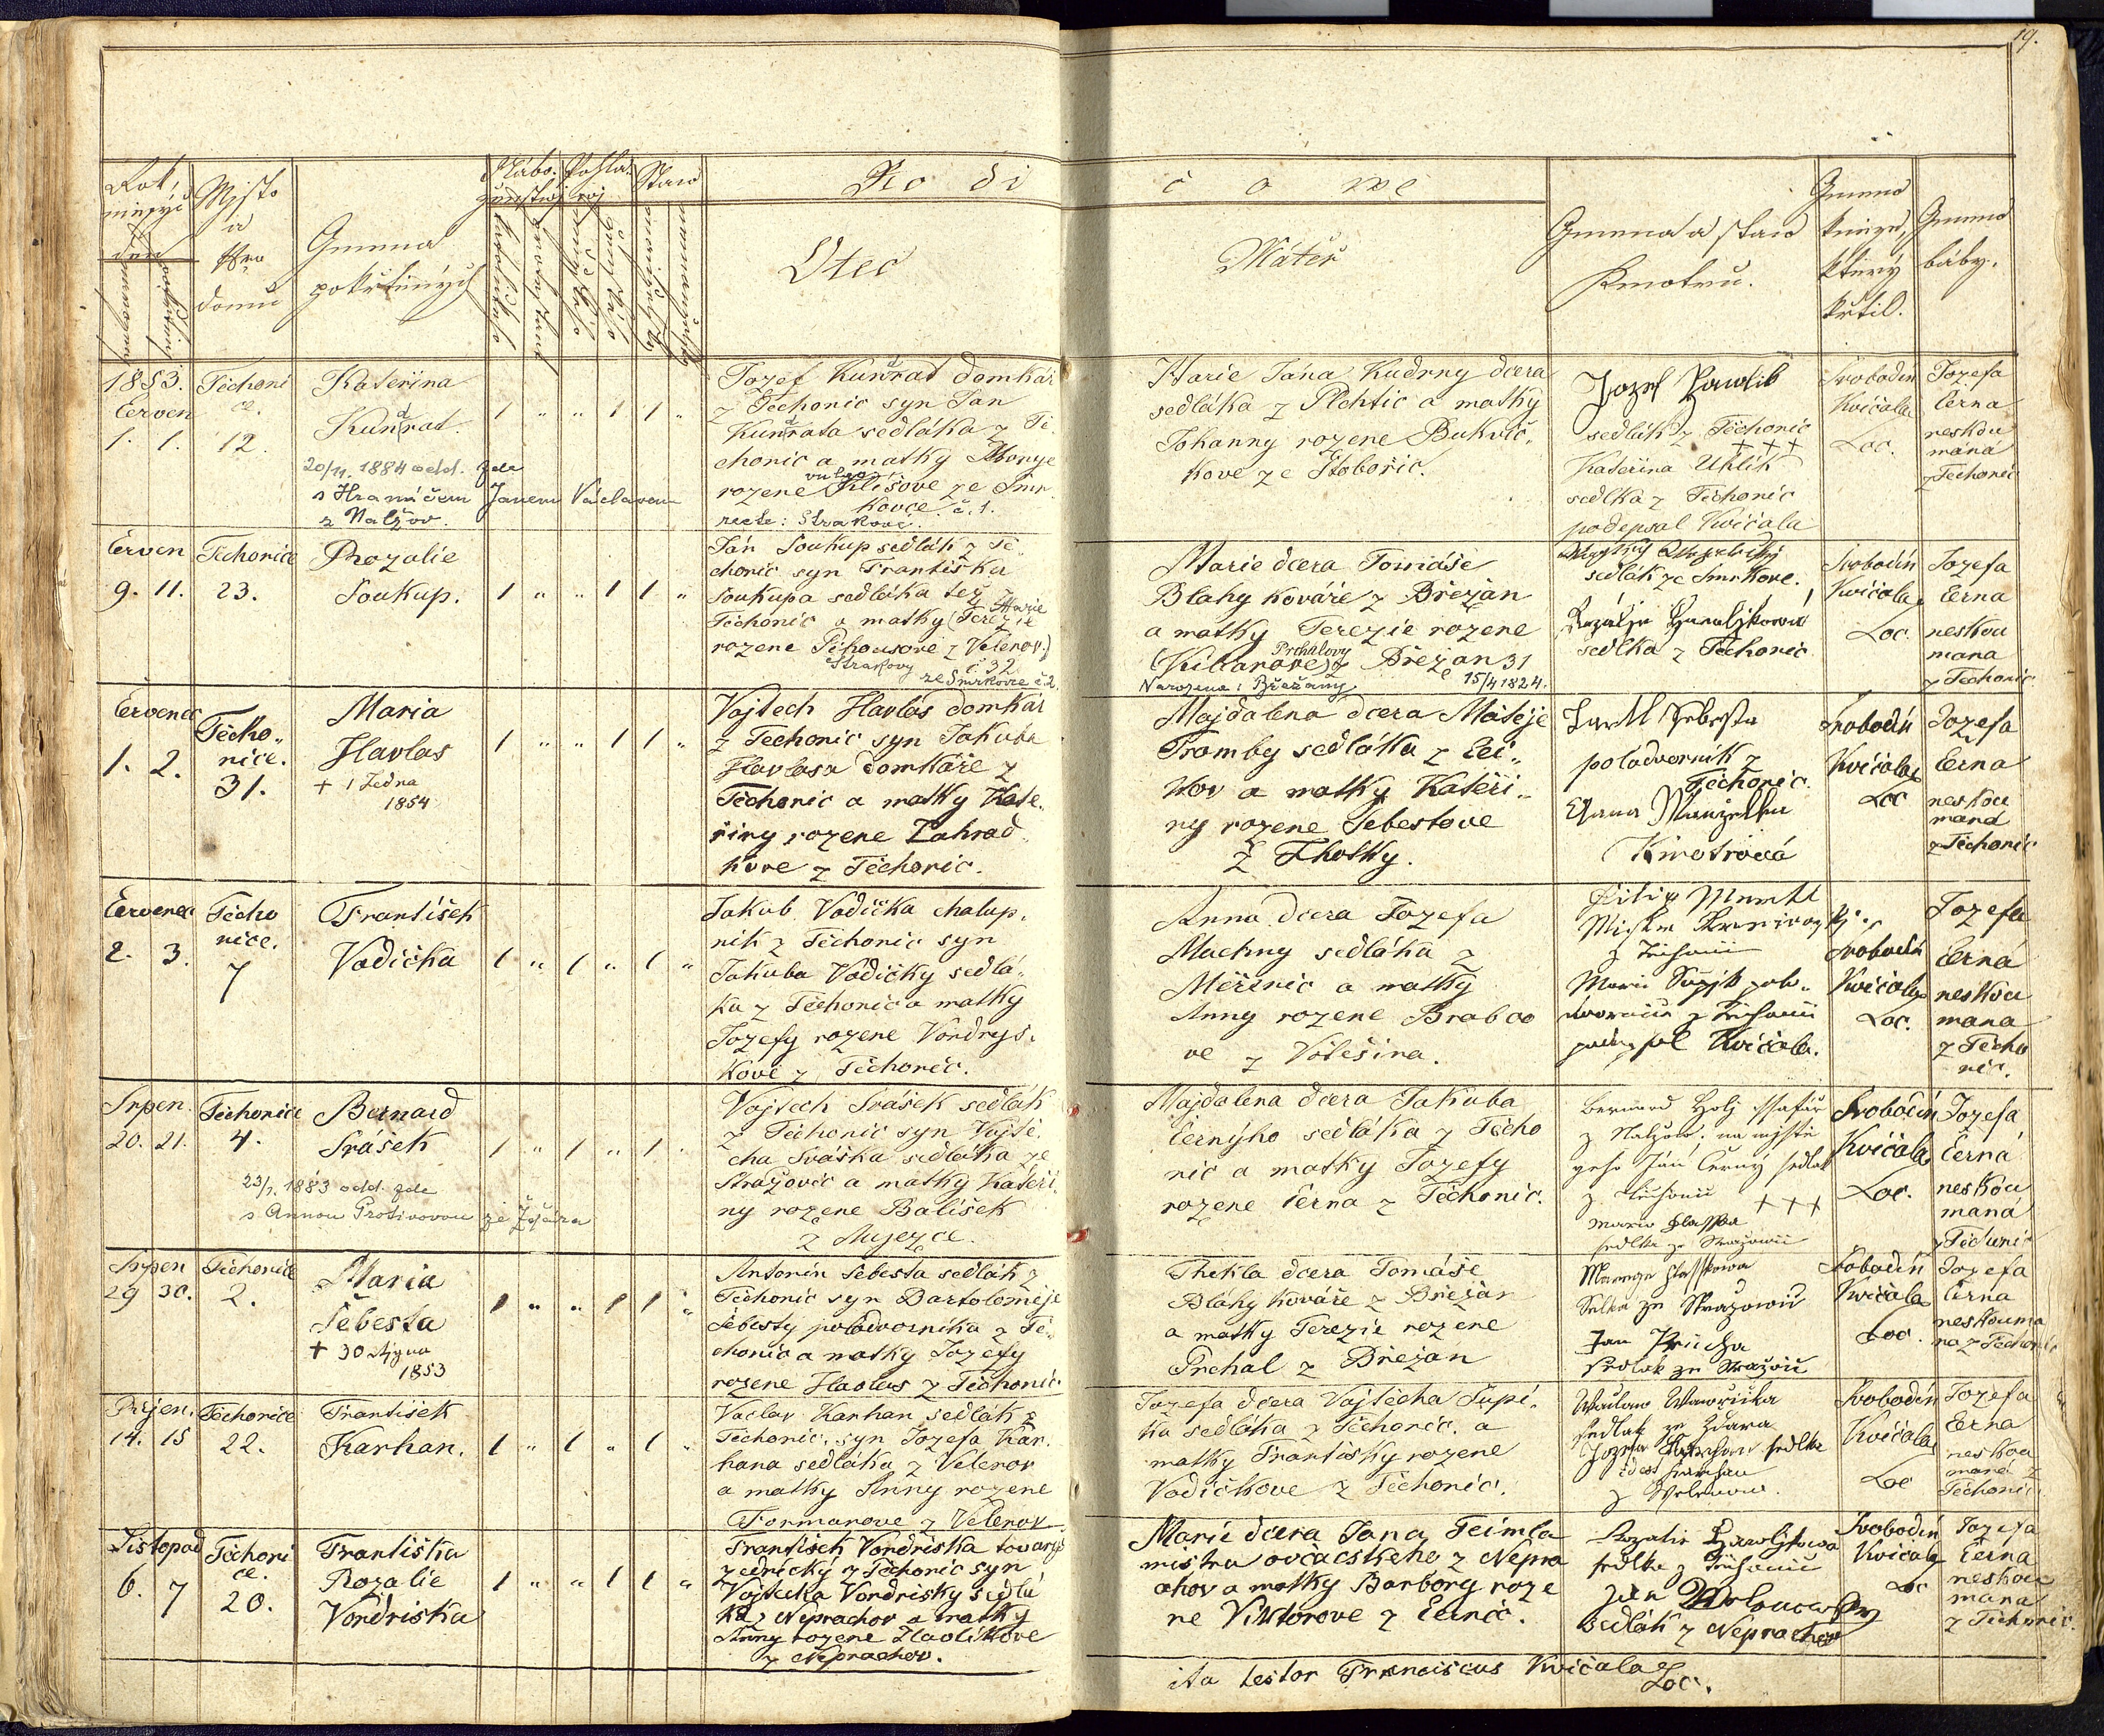 19.
Rok, měsýc den
narození
křtění
Mjsto a Čjslo domu
Gména pokřtěných
Nábo-ženstwj
katolické
Pohla-wj
Staw
manželské
nemanželské
Rodičowé
Otec
Mátěř
Gména a staw Kmotrů.
Gméno kněze, který křtil.
Gméno báby.
1853.
Červen
1. 1.
Těchoni
ce.
12.
Kateřina
Kunrat.
20/11. 1884 odd. zde
s Hranáčem Janem Václavem
z Nalžov.
1 " " 1 1 "
Jozef Kunrat domkář
z Těchonic syn Jan
Kunrata sedláka z Tě
chonic a matky Marye
vulgo
rozene Klišove ze Smr
kovce č. 1.
recte: Strakove.
Marie Jána Kudrny dcera
sedláka z Plchtic a matky
Johanny rozene Bukvič
kove ze Štobořic.
Jozef Pawlik
sedlák z Těchonic
+ + +
Kateřina Uhlik
sedlka z Těchonic
podepsal Kvičala
Svobodin
Kvičala
Loc.
Jozefa
Černa
neskou
maná
z Těchonic
Červen
9. 11.
Těchonice
23.
Rozalie
Soukup.
1 " " 1 1 "
Ján Soukup sedlák z Tě
chonic syn Františka
Soukupa sedláka též z
Marie
Těchonic a matky (Terezie
rozene Pěkousove z Velenov.)
Strakovy č 32
ze Smrkovce č 2.
Marie dcera Tomáše
Blahy kováře z Břežan
a matky Terezie rozene
Prchalovy
(Kilianove) z Břežan 31
Narozena: Břežany 15/4 1824.
sedlák ze Smrkovce.
sedlka z Těchonic
Svobodin
Kvičala
Loc.
Jozefa
Černa
neskou
mana
z Těchonic
Červenec
1. 2.
Těcho
nice.
31.
Maria
Havlas
+ 1 Ledna
1854
1 " " 1 1 "
Vojtech Havlas domkář
z Těchonic syn Jakuba
Havlasa domkáře z
Těchonic a matky Kate
řiny rozene Zahrad
kove z Těchonic.
Majdalena dcera Matěje
Tromby sedláka z Lei
kov a matky Kateři
ny rozene Šebestove
z Lhotky.
Šebesta
poladvorník z
Těchonic.
Anna Manželka
Kmotrová
Svobodin
Kvičala
Loc
Jozefa
Černa
neskou
maná
z Těchonic
Červenec
2. 3.
Těcho
nice.
7
František
Vodička
1 " 1 " 1 "
Jakub Vodička chalup
nik z Těchonic syn
Jakuba Vodičky sedlá
ka z Těchonic a matky
Jozefy rozene Vondrys
kove z Těchonic.
Anna dcera Jozefa
Machny sedláka z
Měčínic a matky
Anny rozene Brabco
ve z Volešina.
z Těchonic
Marie
z Těchonic
podepsal Kvičala.
Svobodin
Kvičala
Loc.
Jozefa
Černá
neskou
mana
z Těcho
nic.
Srpen
20. 21.
Těchonice
4.
Bernard
Srášek
23/1. 1883 odd. zde
s Annou Protivovou ze Žďára
1 " 1 " 1 "
Vojtech Srášek sedlák
z Těchonic syn Vojtě
cha Sráška sedláka ze
Stražovic a matky Kateři
ny rozene Bališek
z Mujezce.
Majdalena dcera Jakuba
Černýho sedláka z Těcho
nic a matky Jozefy
rozene Černa z Těchonic.
Bernard Holj ssafář
z Nalžow. na mjstě
geho Ján Černý sedlak
z Těchonic + + +
Maria Hlasska
sedlka ze Stražowic
Svobodin
Kvičala
Loc.
Jozefa
Černá
neskou
maná
z Těchonic
Srpen
29 30.
Těchonice
2.
Maria
Šebesta
+ 30 Října
1853
1 " " 1 1 "
Antonín Šebesta sedlák z
Těchonic syn Bartoloměje
Šebesty poladvornika z Tě
chonic a matky Jozefy
rozene Havlas z Těchonic
Thekla dcera Tomáše
Bláhy kováře z Břežan
a matky Terezie rozene
Prchal z Břežan
Marya Hlasskowa
Selka ze Stražowic
Jan Průcha
sedlak ze Stražowic
Svobodin
Kvičala
Loc.
Jozefa
Černa
neskouma
na z Těchonic
Řijen.
14. 15
Těchonice
22.
František
Karhan.
1 " 1 " 1 "
Vaclav Karhan sedlák z
Těchonic, syn Jozefa Kar
hana sedláka z Velenov
a matky Anny rozene
Formanove z Velenov
Jozefa dcera Vojtěcha Šupi
ka sedláka z Těchonic, a
matky Františky rozene
Vodičkove z Těchonic.
Waclaw Wawřička
sedlak ze Zdara
Jozefa Karhan sedlka
z Welenow.
Svobodin
Kvičala
Loc
Jozefa
Černa
neskou
maná z
Těchonic
Listopad
6. 7
Těchoni
ce.
20.
Františka
Rozalie
Vondriska
1 " " 1 1 "
František Vondriska tovaryš
zednický z Těchonic syn
Vojtecha Vondrisky sedlá
ka z Neprachov a matky
Anny rozene Havlikove
z Neprachov.
Marie dcera Jana Teimla
mistra ovčáckeho z Nepra
chov a matky Barbory roze
ne Viktorove z Černic.
Rozalie
sedlka z Těchonic
Jan
Sedlák z Neprachov
Svobodin
Kvičala
Loc
Jozefa
Černa
neskou
mana
z Těchonic.
ita testor Franciscus Kvičala
Loc.